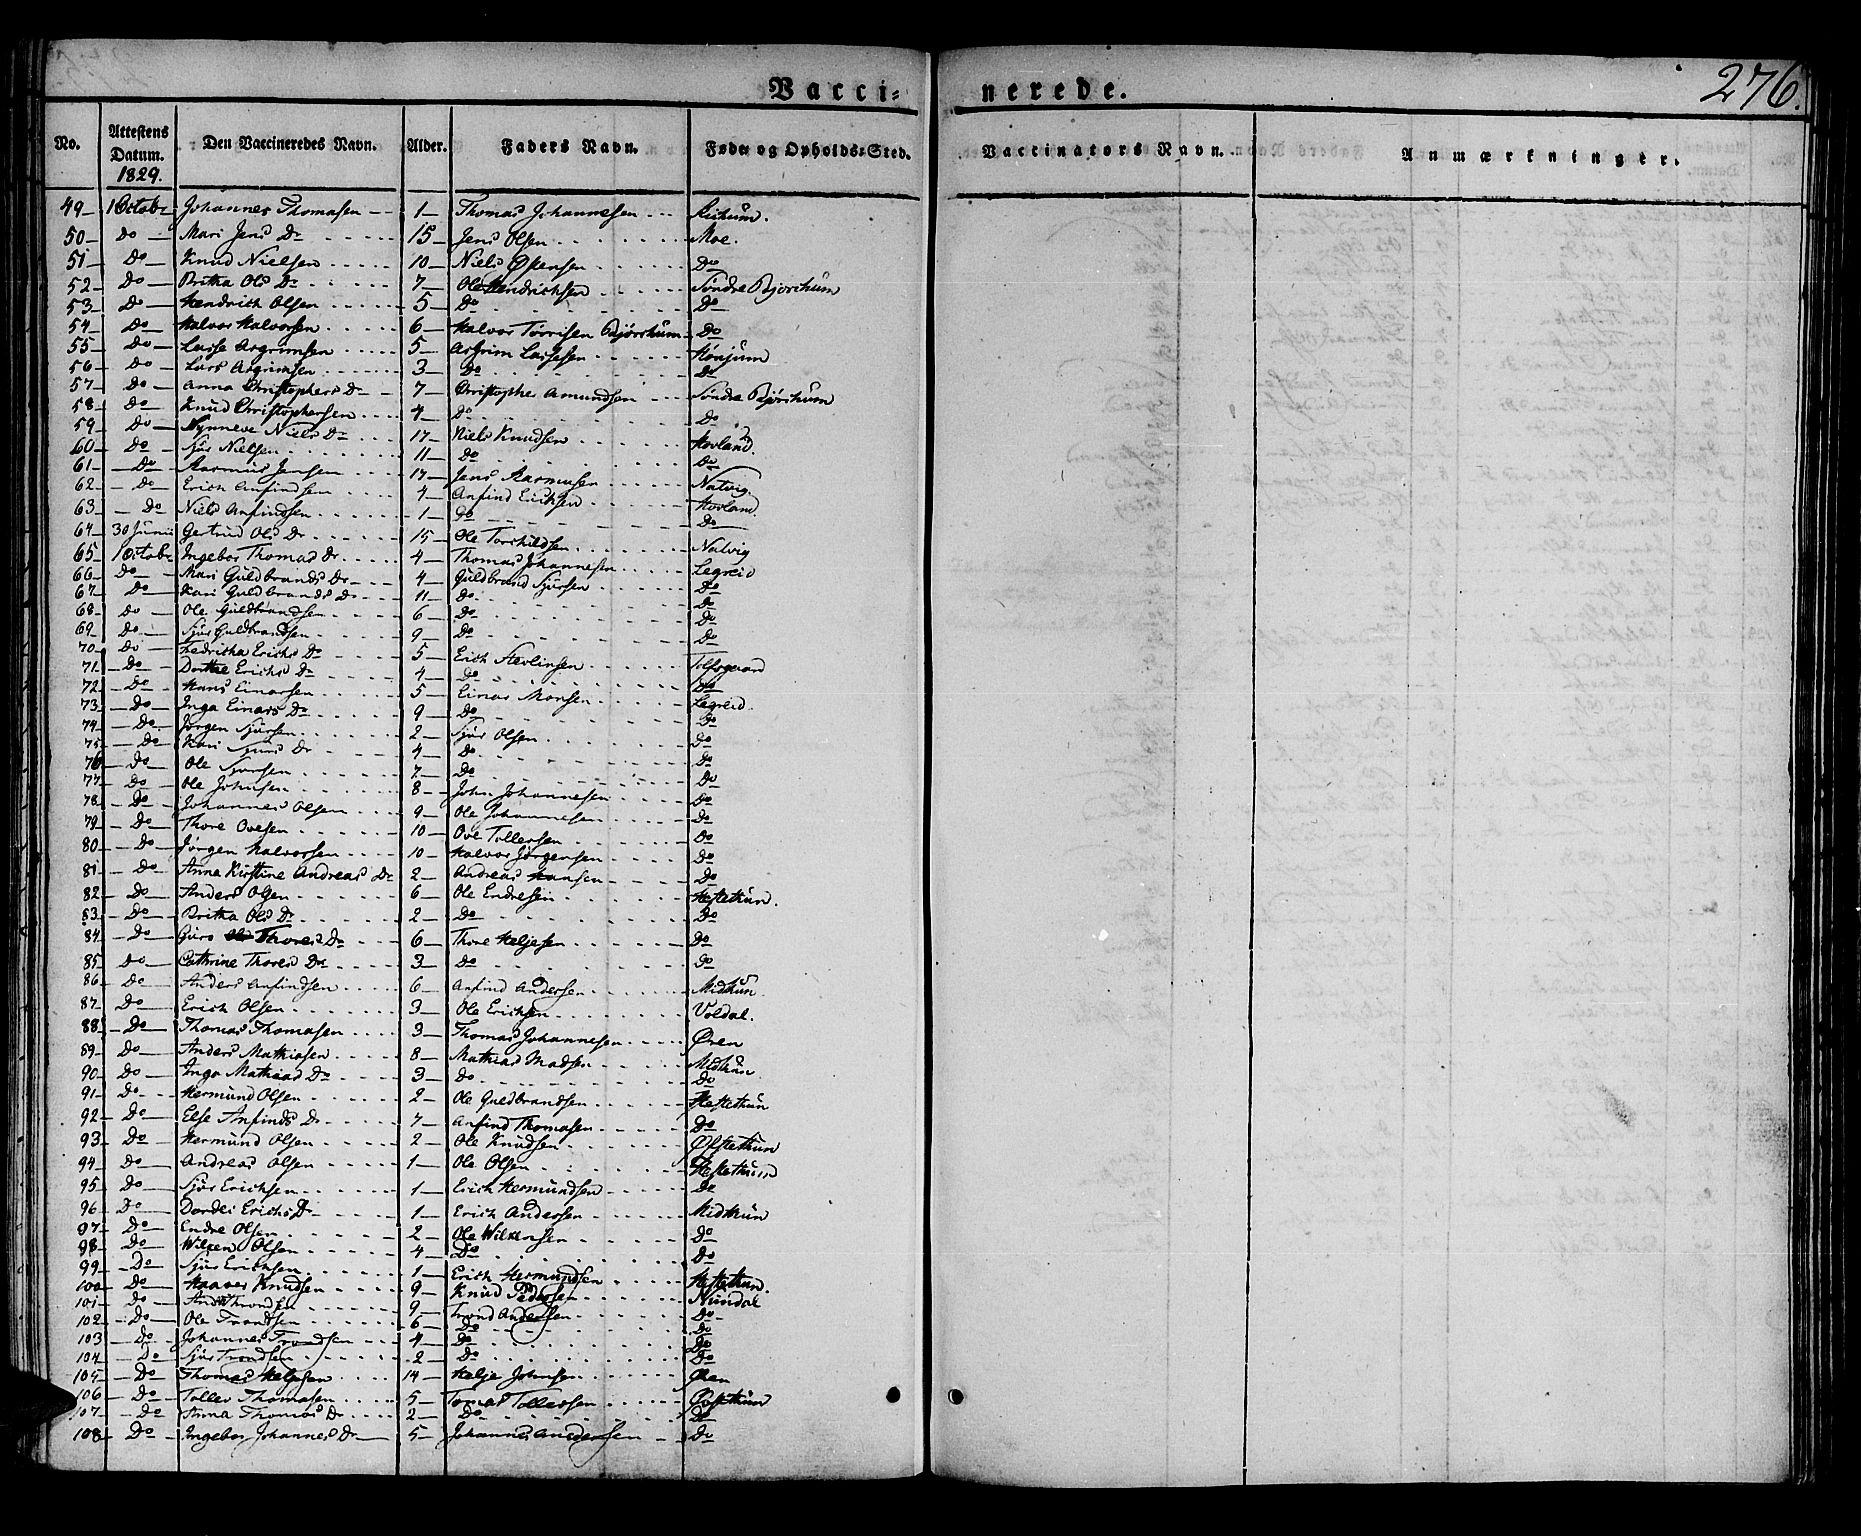 Vacci= nerede. 276.
No. Attestens Datum. 1829. Den Vaccineredes Navn. Alder. Faders Navn. Føde og Opholds-Sted. Vaccinators Navn. Anmærkninger.
49 1 Octobr Johannes Thomasen 1 Thomas Johannesen
50 Do Mari Jens Dr 15 Jens Olsen Moe.
51 Do Knud Nielsen 10 Niels Do
52 Do Britha Ols Dr 7 Ole Hendrichsen Søndre Bjørchum
53 Do Hendrich Olsen 5 Do Do
54 Do Halvor Halvorsen 6 Halvor Torrisen Bjørchum Do
55 Do Lasse Asgrimsen 5 Asgrim Lassesen Hønjum
56 Do Lars Asgrimsen 3 Do Do
57 Do Anna Christophers Dr 7 Christopher Amundsen Søndre Bjørchum
58 Do Knud Christophersen 4 Do Do
59 Do Synneve Niels Dr 17 Niels Knudsen Hovland
60 Do Sjur Nielsen 11 Do Do
61 Do Rasmus Jensen 17 Jens Rasmusen Natvig.
62 Do Erich Anfindsen 4 Anfind Erichsen Hovland
63 Do Niels Anfindsen 1 Do Do
64 30 Junii Gertrud Ols Dr 15 Ole Torchildsen Natvig
65 1 Octobr Ingebor Thomas Dr 4 Thomas Johannesen Legreid
66 Do Mari Guldbrands Dr 4 Guldbrand Sjursen Do
67 Do Kari Guldbrands Dr 11 Do Do
68 Do Ole Guldbrandsen 6 Do Do
69 Do Sjur Guldbrandsen 9 Do Do
70 Do Fredricha Erichs Dr 5 Erich
71 Do Dorthe Erichs Dr 4 Do Do
72 Do Hans Einarsen 5 Einar Monsen Legreid.
73 Do Inga Einars Dr 9 Do Do
74 Do Jørgen Sjursen 2 Sjur Olsen Do
75 Do Kari Sjurs Dr 4 Do Do
76 Do Ole Sjursen 7 Do Do
77 Do Ole Johnsen 8 John Johannesen Do
78 Do Johannes Olsen 9 Ole Johannesen Do
79 Do Thore Ovesen 10 Ove Tollevsen Do
80 Do Jørgen Halvorsen 10 Halvor Jørgensen Do
81 Do Anna Kirstine Andreas Dr 2 Andreas Hansen Do
82 Do Anders Olsen 6 Ole Endresen Hestethun.
83 Do Britha Ols Dr 2 Do Do
84 Do Guro Thores Dr 6 Thore Heljesen Do
85 Do Cathrine Thores Dr 3 Do Do
86 Do Anders Anfindsen 6 Anfind Andersen Midthun.
87 Do Erich Olsen 3 Ole Erichsen Voldal.
88 Do Thomas Thomasen 3 Thomas Johannesen Øren
89 Do Anders Mathiasen 8 Mathias Madsen Midthun
90 Do Inga Mathias Dr 3 Do Do
91 Do Hermund Olsen 2 Ole Guldbrandsen Hestethun
92 Do Else Anfinds Dr 7 Anfind Thomasen Do
93 Do Hermund Olsen 2 Ole Knudsen Øfstethun
94 Do Andreas Olsen 1 Ole Olsen Hestethun
95 Do Sjur Erichsen 1 Erich Hermundsen Do
96 Do Dordei Erichs Dr 1 Erich Andersen Midthun
97 Do Endre Olsen 2 Ole Wilkensen Do
98 Do Wilken Olsen 4 Do Do
99 Do Sjur Erichsen 1 Erich Hermundsen Hestethun.
100 Do Haaver Knudsen 9 Knud Pedersen Nundal
101 Do 9 Trond Andersen Do
102 Do Ole Trondsen 6 Do Do
103 Do Johannes Trondsen 4 Do Do
104 Do Sjur Trondsen 2 Do Do
105 Do Thomas Heljesen 14 Helje Johnsen Øren
106 Do Tollev Thomasen 5 Tomas Tollevsen Øvstethun
107 Do Anna Thomas Dr 2 Do Do
108 Do Ingebor Johannes Dr 5 Johannes Andersen Do